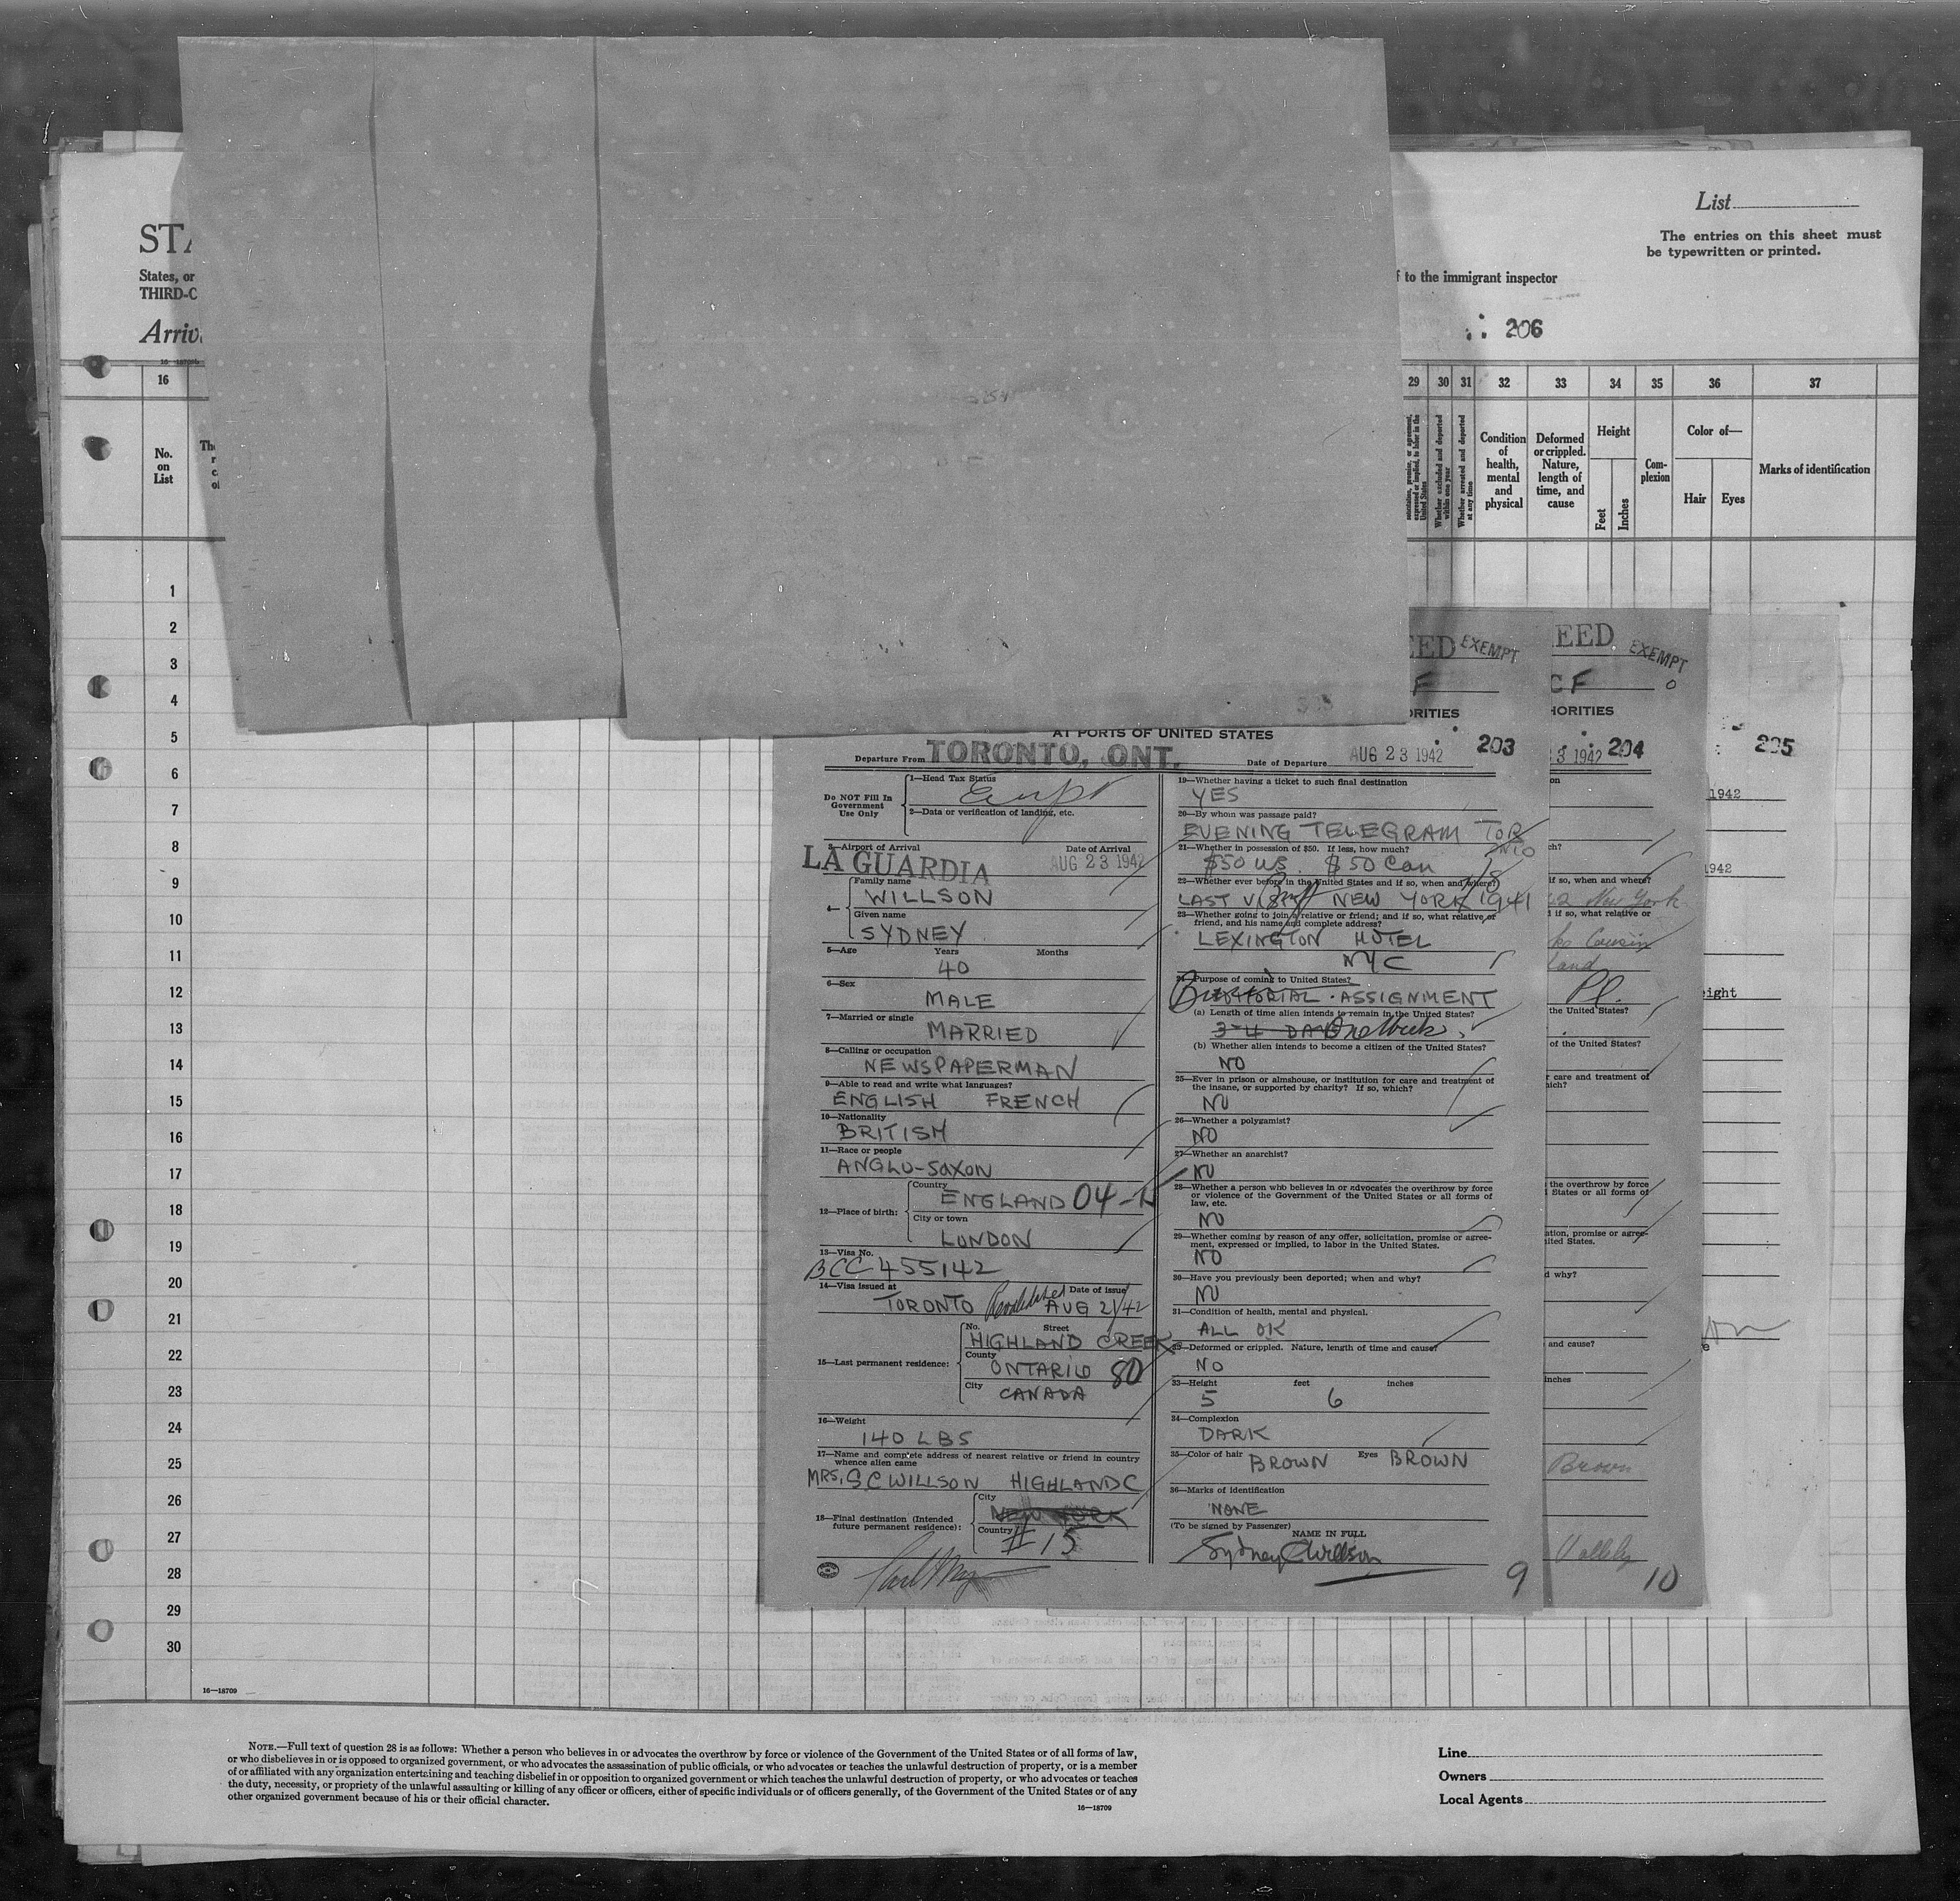 List
The entries on this sheet must
be typewritten or printed.
STA
States, or
THIRD-C
f to the immigrant inspector
Arriv
206
16 29 30 31 32 33 34 35 36 37
No.
on
List
Condition
of
health,
mental
and
physical
Deformed
or crippled.
Nature,
length of
time, and
cause
Height
Feet
Inches
Com-
plexion
Color of—
Hair
Eyes
Marks of identification
Whether excluded and deported
within one year
Whether arrested and deported
at any time
1
2
3
4
5
6
7
8
9
10
11
12
13
14
15
16
17
18
19
20
21
22
23
24
25
26
27
28
29
30
16—18709
AT PORTS OF UNITED STATES
Departure From TORONTO, ONT. Date of Departure AUG 23 1942 203
Do NOT Fill In
Government
Use Only
1—Head Tax Status
2—Data or verification of landing, etc.
3—Airport of Arrival Date of Arrival
LA GUARDIA AUG 23 1942
4— Family name
WILLSON
Given name
SYDNEY
5—Age Years Months
40
6—Sex
MALE
7—Married or single
MARRIED
8—Calling or occupation
NEWSPAPERMAN
9—Able to read and write what languages?
ENGLISH FRENCH
10—Nationality
BRITISH
11—Race or people
ANGLO-SAXON
12—Place of birth:
Country
ENGLAND 04
City or town
LONDON
13—Visa No.
BCC 455142
14—Visa issued at Date of issue
TORONTO Revalidated AUG 21/42
15—Last permanent residence:
No. Street
HIGHLAND CREEK
County
ONTARIO 80
City
CANADA
16—Weight
140 LBS
17—Name and complete address of nearest relative or friend in country
whence alien came
MRS. S C WILLSON HIGHLAND C
18—Final destination (Intended
future permanent residence):
City
NEW YORK
Country
# 15
19—Whether having a ticket to such final destination
YES
20—By whom was passage paid?
EVENING TELEGRAM
21—Whether in possession of $50. If less, how much?
$50 US. $50 Can
22—Whether ever before in the United States and if so, when and where?
LAST NEW YORK 1941
23—Whether going to join a relative or friend; and if so, what relative or
friend, and his name and complete address?
LEXINGTON HOTEL
NYC
24—Purpose of coming to United States?
ASSIGNMENT
(a) Length of time alien intends to remain in the United States?
3-4 DAYS One Week
(b) Whether alien intends to become a citizen of the United States?
NO
25—Ever in prison or almshouse, or institution for care and treatment of
the insane, or supported by charity? If so, which?
NO
26—Whether a polygamist?
NO
27—Whether an anarchist?
NO
28—Whether a person who believes in or advocates the overthrow by force
or violence of the Government of the United States or all forms of
law, etc.
NO
29—Whether coming by reason of any offer, solicitation, promise or agree-
ment, expressed or implied, to labor in the United States.
NO
30—Have you previously been deported; when and why?
NO
31—Condition of health, mental and physical.
ALL OK
32—Deformed or crippled. Nature, length of time and cause?
NO
33—Height feet inches
5 6
34—Complexion
DARK
35—Color of hair BROWN Eyes BROWN
36—Marks of identification
NONE
(To be signed by Passenger)
NAME IN FULL
Sydney C Willson
9
EED EXEMPT
F
ORITIES
EED EXEMPT
CF 0
HORITIES
3 1942 204
if so, when and where?
New York
d if so, what relative or
Cousin
land
Pl.
the United States?
of the United States?
r care and treatment of
the overthrow by force
d States or all forms of
ation, promise or agree-
ited States.
d why?
and cause?
inches
Brown
10
205
1942
1942
eight
NOTE.—Full text of question 28 is as follows: Whether a person who believes in or advocates the overthrow by force or violence of the Government of the United States or of all forms of law,
or who disbelieves in or is opposed to organized government, or who advocates the assassination of public officials, or who advocates or teaches the unlawful destruction of property, or is a member
of or affiliated with any organization entertaining and teaching disbelief in or opposition to organized government or which teaches the unlawful destruction of property, or who advocates or teaches
the duty, necessity, or propriety of the unlawful assaulting or killing of any officer or officers, either of specific individuals or of officers generally, of the Government of the United States or of any
other organized government because of his or their official character.
16—18709
Line
Owners
Local Agents